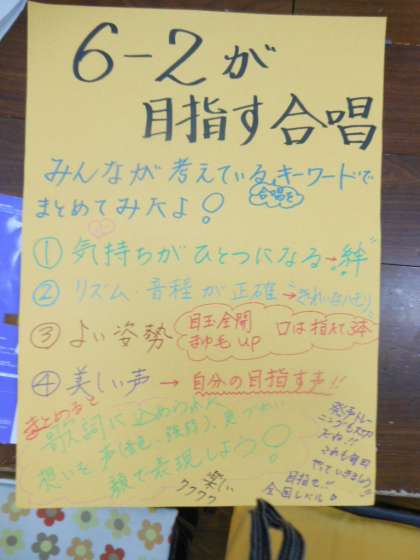 6-2が
目指す合唱
みんなが考えている、キーワードで
合唱を
まとめてみたよ!
①気持ちがひとつになる→絆
②リズム・音程が正確→きれいなハモリ
③よい姿勢
目玉全開 口は指たて3本
まゆ毛up
④美しい声→自分の目指す声!!
まとめると
歌詞に込められた
想いを声(音色・強弱)、息づかい
顔で表現しよう!
楽しい
ワクワク
発声トレ
だね!!
これも毎日
やっていきましょう
目指せ!!
全国レベル